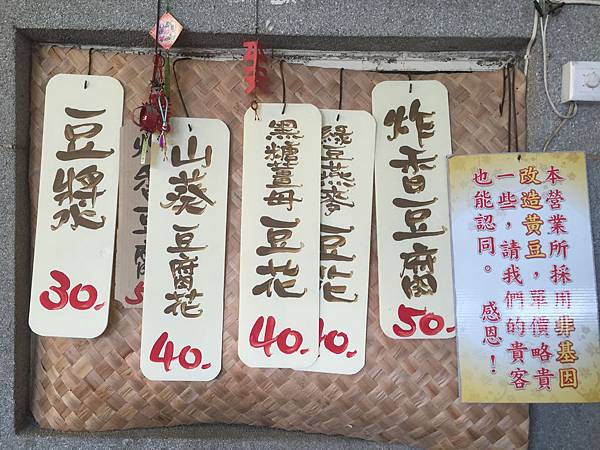 豆漿
30.-
香豆腐
5
山葵豆腐花
40.-
黑糖薑母豆花
40.-
綠豆燕麥豆花
0.-
炸香豆腐
50.-
本營業所採用非基因
改造黃豆，單價略貴
一些，請我們的貴客
也能認同。 感恩！